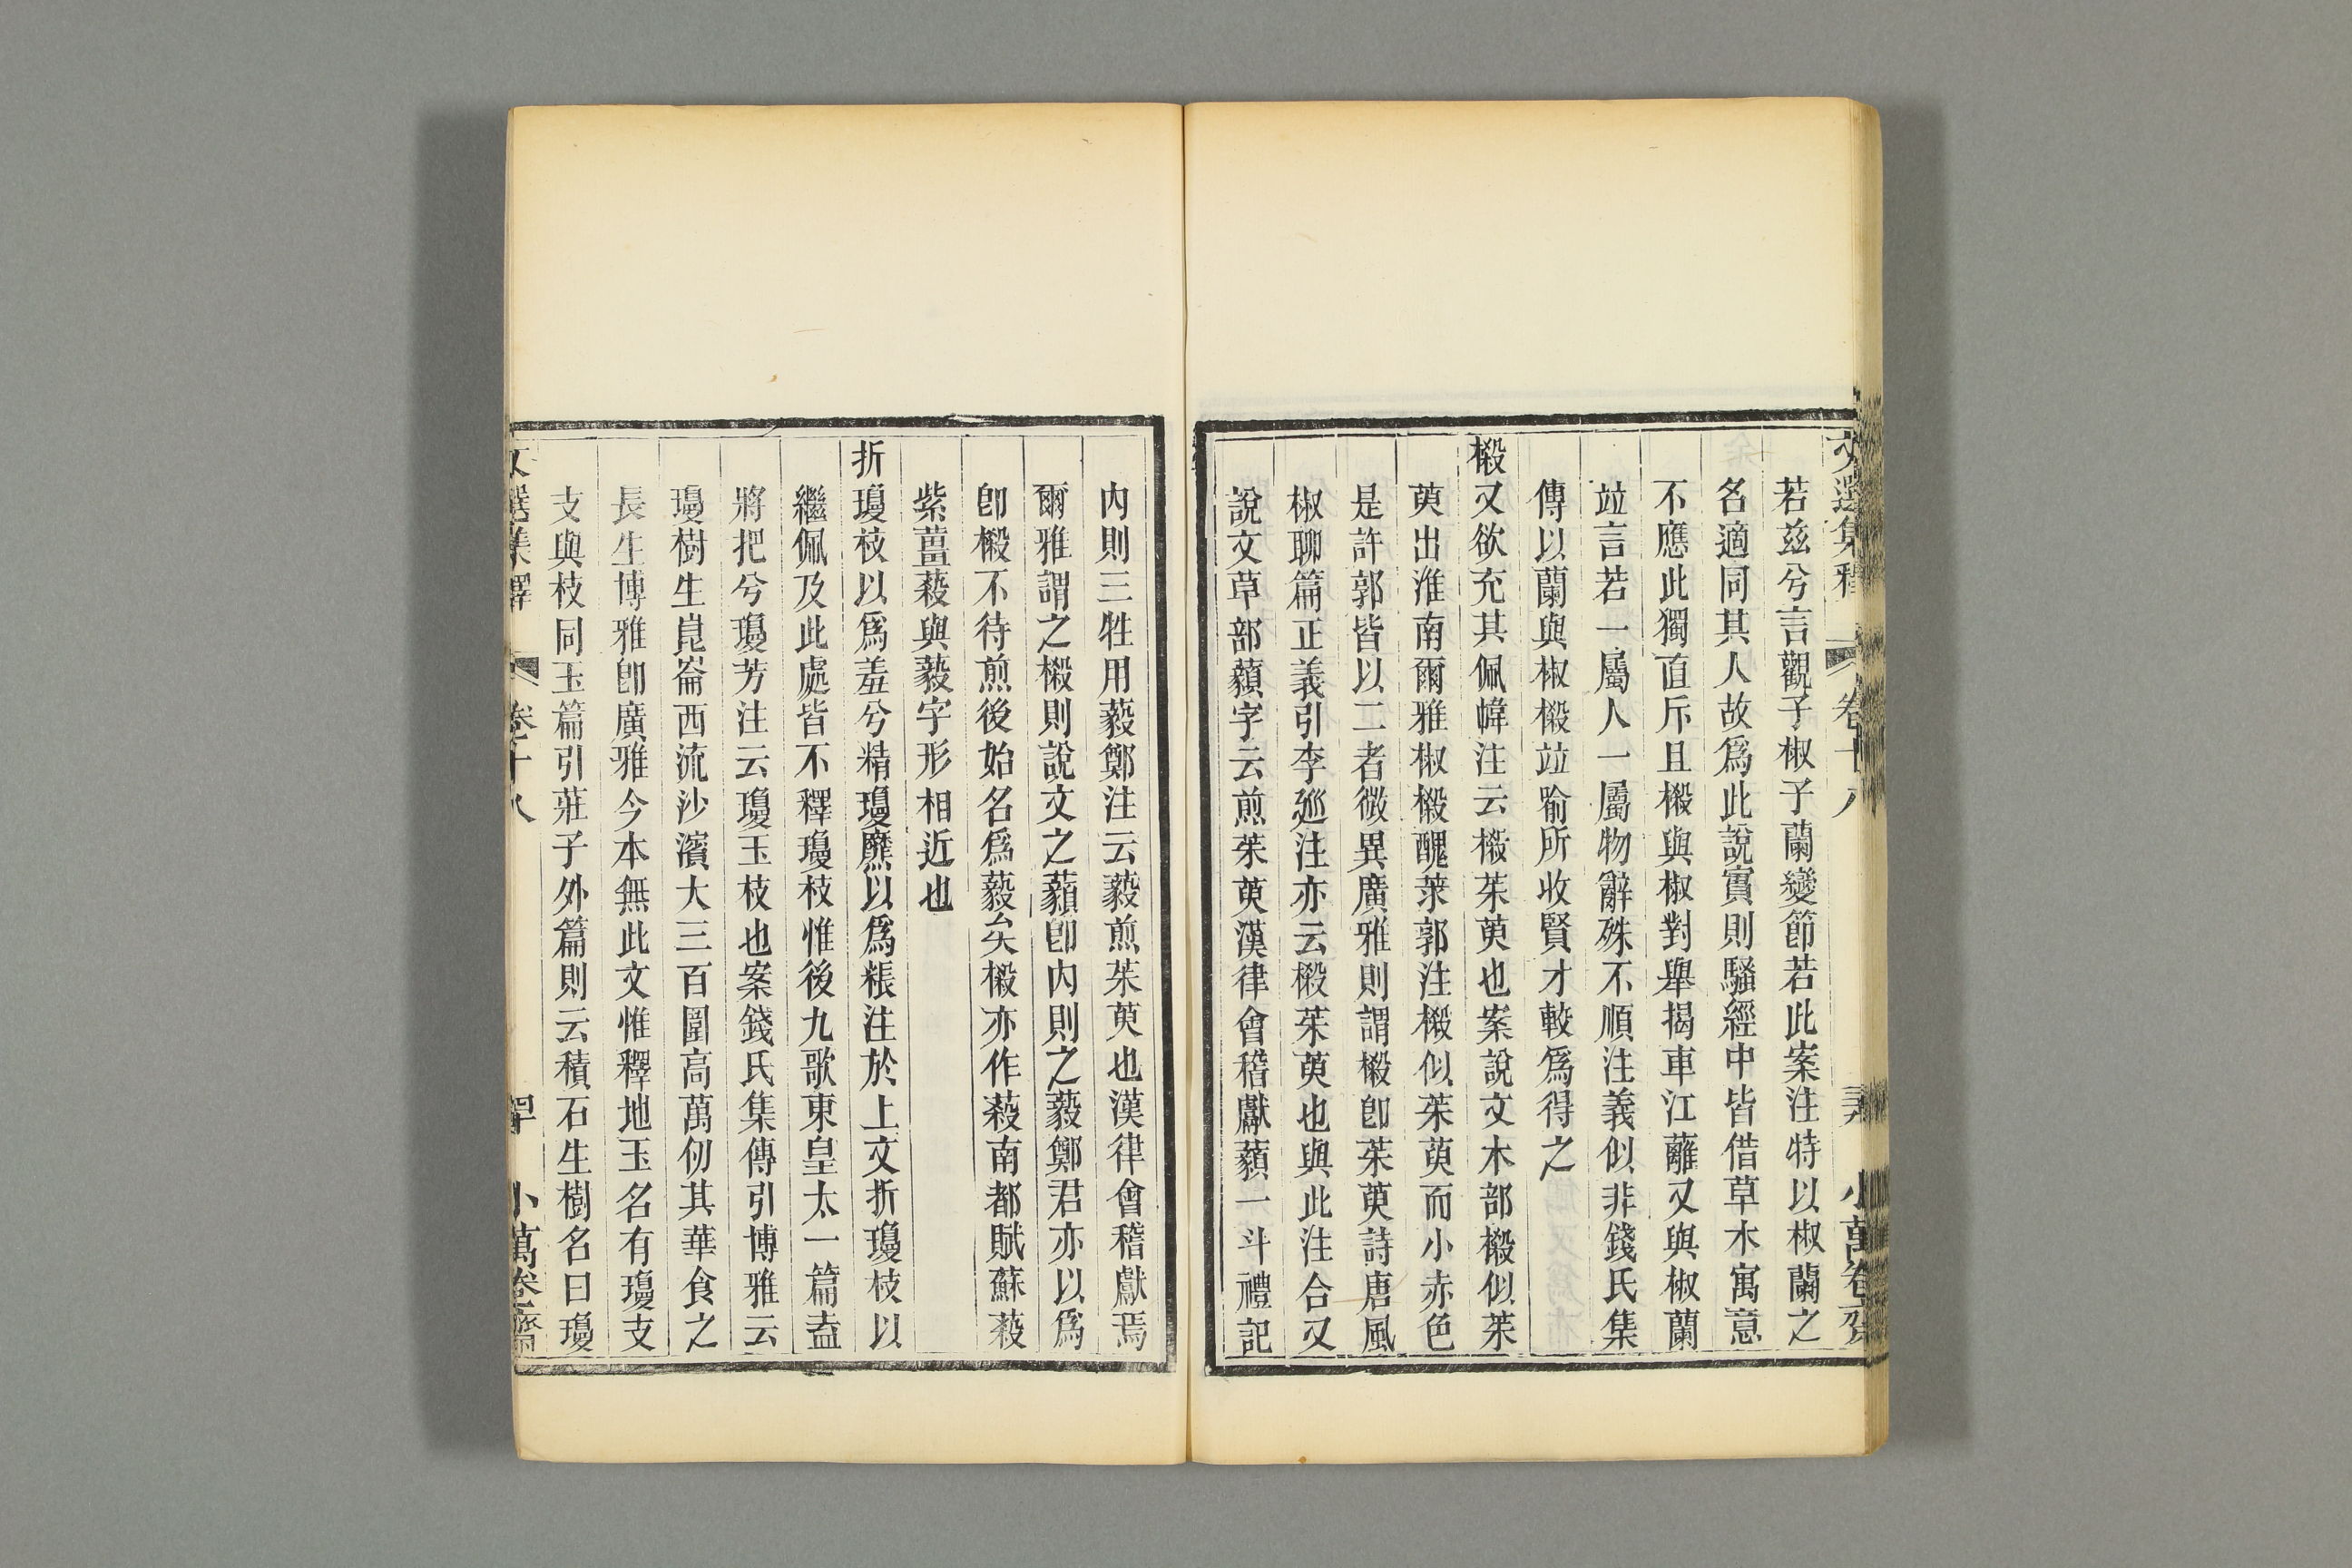 文選集釋 卷十八 小萬卷齋
若兹兮言觀子椒子蘭變節若此案注特以椒蘭之
名適同其人故爲此說實則騷經中皆借草木寓意
不應此獨直斥且樧與椒對舉揭車江蘺又與椒蘭
竝言若一屬人一屬物辭殊不順注義似非錢氏集
傳以蘭與椒樧竝喻所收賢才較爲得之
樧又欲充其佩幃注云樧茱萸也案說文木部樧似茱
萸出淮南爾雅椒樧醜莍郭注樧似茱萸而小赤色
是許郭皆以二者微異廣雅則謂樧卽茱萸詩唐風
椒聊篇正義引李廵注亦云樧茱萸也與此注合又
說文草部藙字云煎茱萸漢律會稽獻藙一斗禮記
內則三牲用藙鄭注云藙煎茱萸也漢律會稽獻焉
爾雅謂之樧則說文之藙卽內則之藙鄭君亦以爲
卽樧不待煎後始名爲藙矣樧亦作蔱南都賦蘇蔱
紫薑蔱與藙字形相近也
折瓊枝以爲羞兮精瓊爢以爲粻注於上文折瓊枝以
繼佩及此處皆不釋瓊枝惟後九歌東皇太一篇盍
將把兮瓊芳注云瓊玉枝也案錢氏集傳引博雅云
瓊樹生崑崙西流沙濱大三百圍高萬仞其華食之
長生博雅卽廣雅今本無此文惟釋地玉名有瓊支
支與枝同玉篇引莊子外篇則云積石生樹名曰瓊
文選集釋 卷十八 罕 小萬卷齋